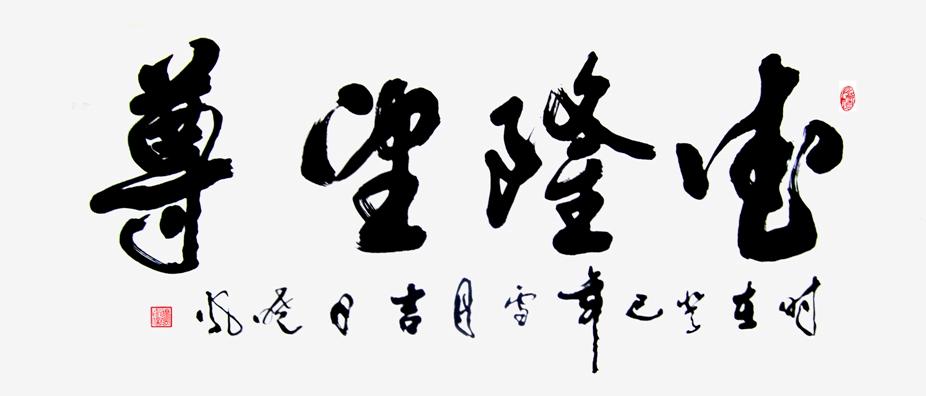 德隆望尊
时在癸巳年雪月吉日